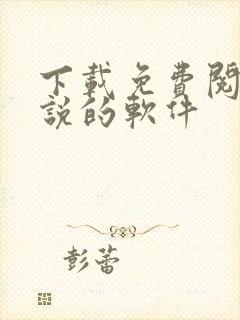 下載免費閱
說的軟件
彭蕾